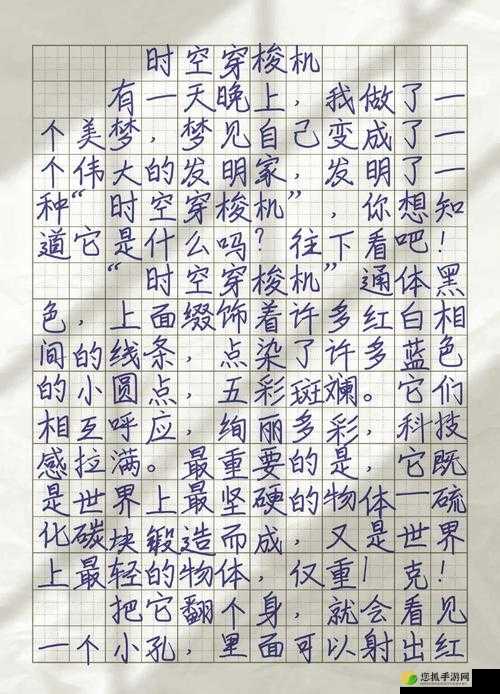 时空穿梭机
有一天晚上，我做了一
个美梦，梦见自己变成了一
个伟大的发明家，发明了一
种“时空穿梭机”，你想知
道它是什么吗？往下看吧！
“时空穿梭机”通体黑
色，上面缀饰着许多红白相
间的线条，点染了许多蓝色
的小圆点，五彩斑斓。它们
相互呼应，绚丽多彩，科技
感拉满。最重要的是，它既
是世界上最坚硬的物体—硫
化碳块锻造而成，又是世界
上最轻的物体，仅重1克！
把它翻个身，就会看见
一个小孔，里面可以射出红
您抓手游网